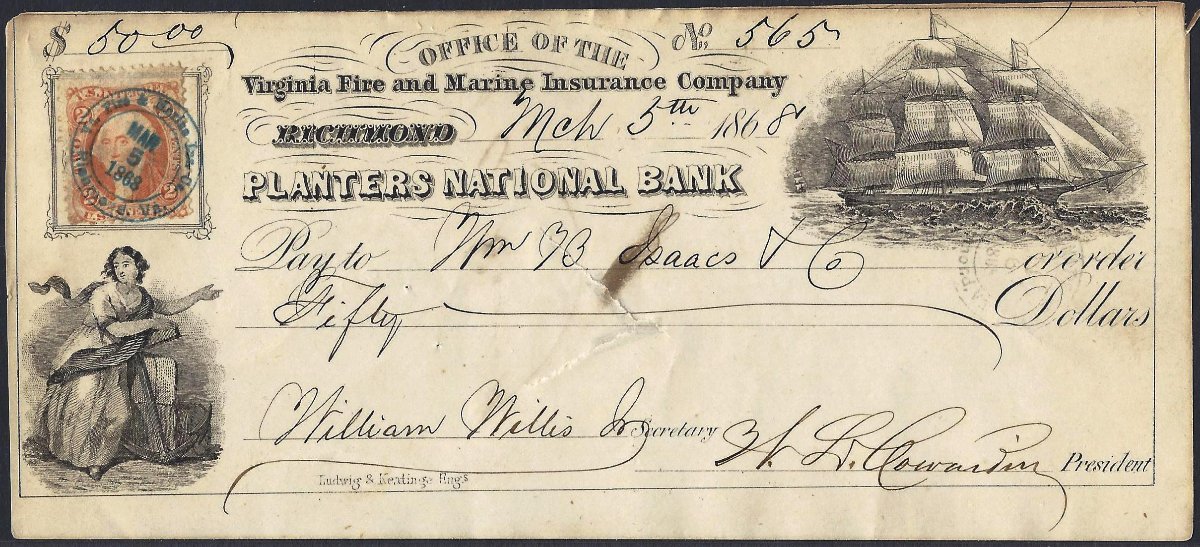 $ 50 00
OFFICE OF THE
No. 565
Virginia Fire and Marine Insurance Company
RICHMOND Mch 5th 1868
PLANTERS NATIONAL BANK
MAR
5
1868
Pay to Wm B Isaacs & Co or order
Fifty Dollars
William Willis Jr Secretary
W. L. Cowardin President
Ludwig & Keatinge Engs